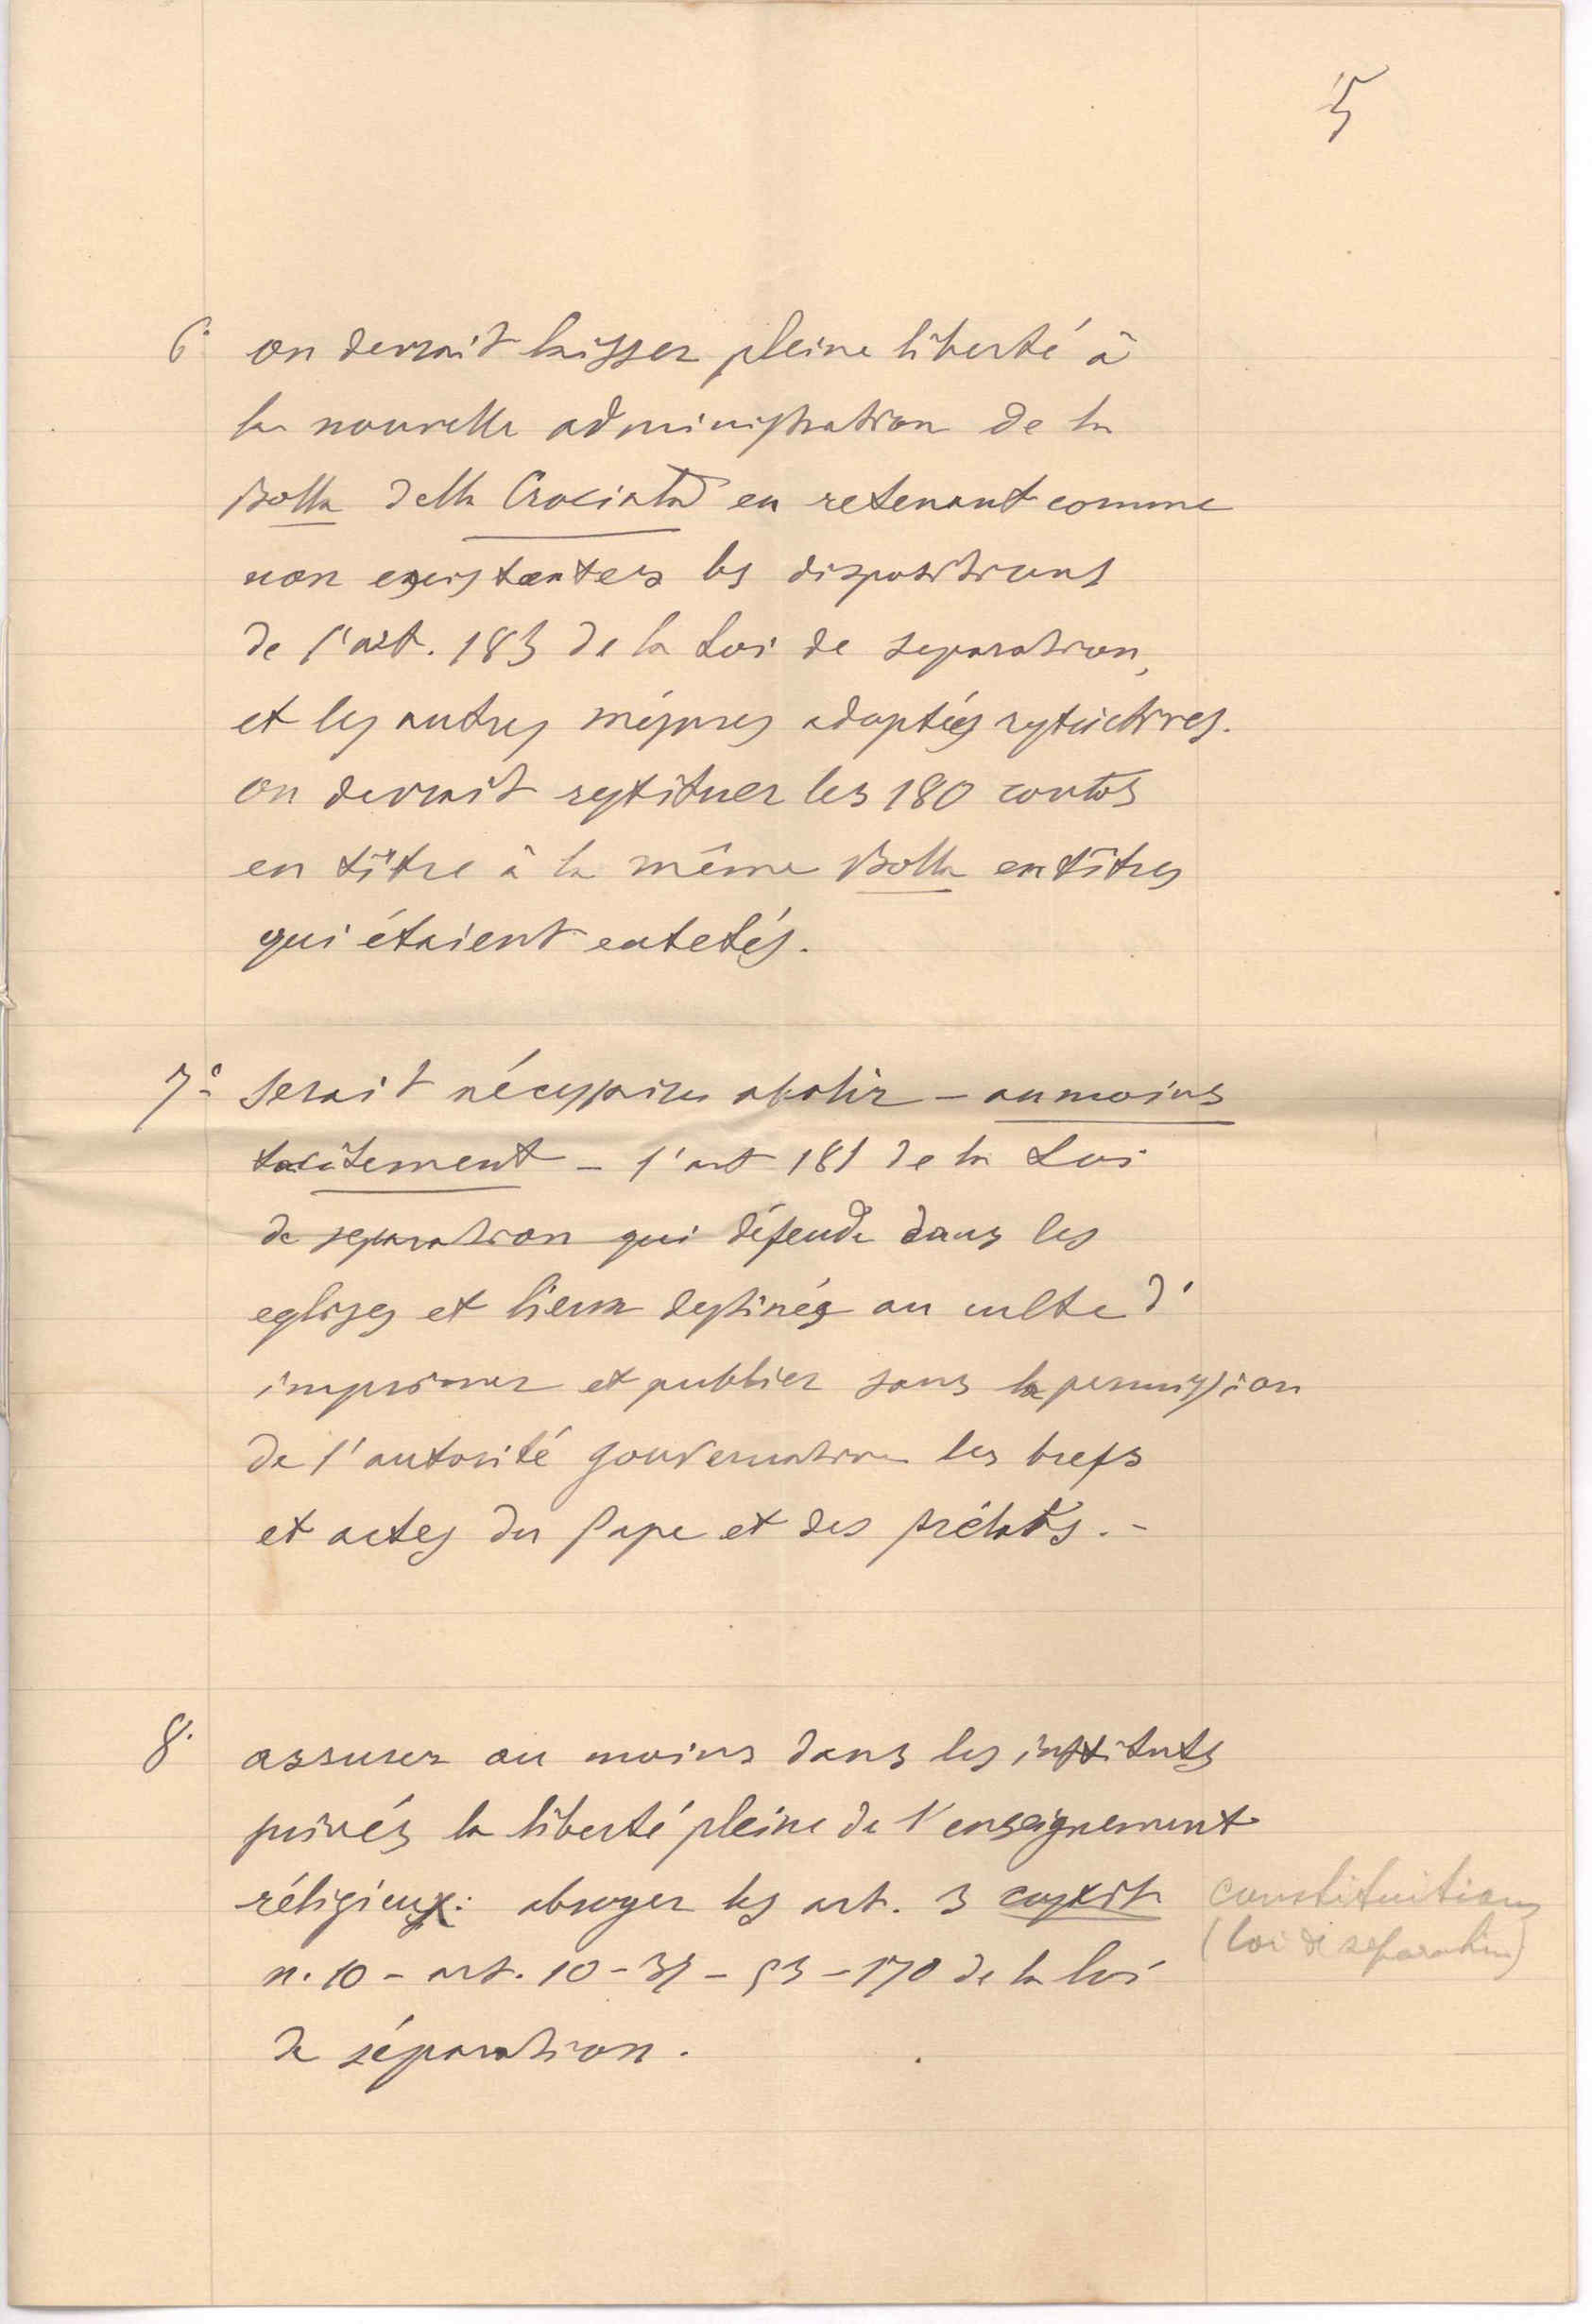 5
6° on devrait laisser pleine liberté à
la nouvelle administration de la
Bolla della Crociata en retenant comme
non existantes les dispositions
de l'art. 183 de la Loi de separation,
et les autres mésures adoptées restrictives.
on devrait restituer les 180 contos
en titre à la même Bolla en titres
qui étaient
7° Serait nécessaire abolir - au moins
tacitement - l'art 181 de la Loi
de separation qui défende dans les
eglises et lieux destinés au culte d'
imprimer et publier sans la permission
de l'autorité gouvernative les brefs
et actes du Pape et des prélats. -
8° assurer au moins dans les instituts
privés la liberté pleine de l'enseignement
réligieux: abroger les art. 3
constituition
n. 10 - art. 10 - 37 - 53 - 170 de la loi
(loi de separation)
de séparation.